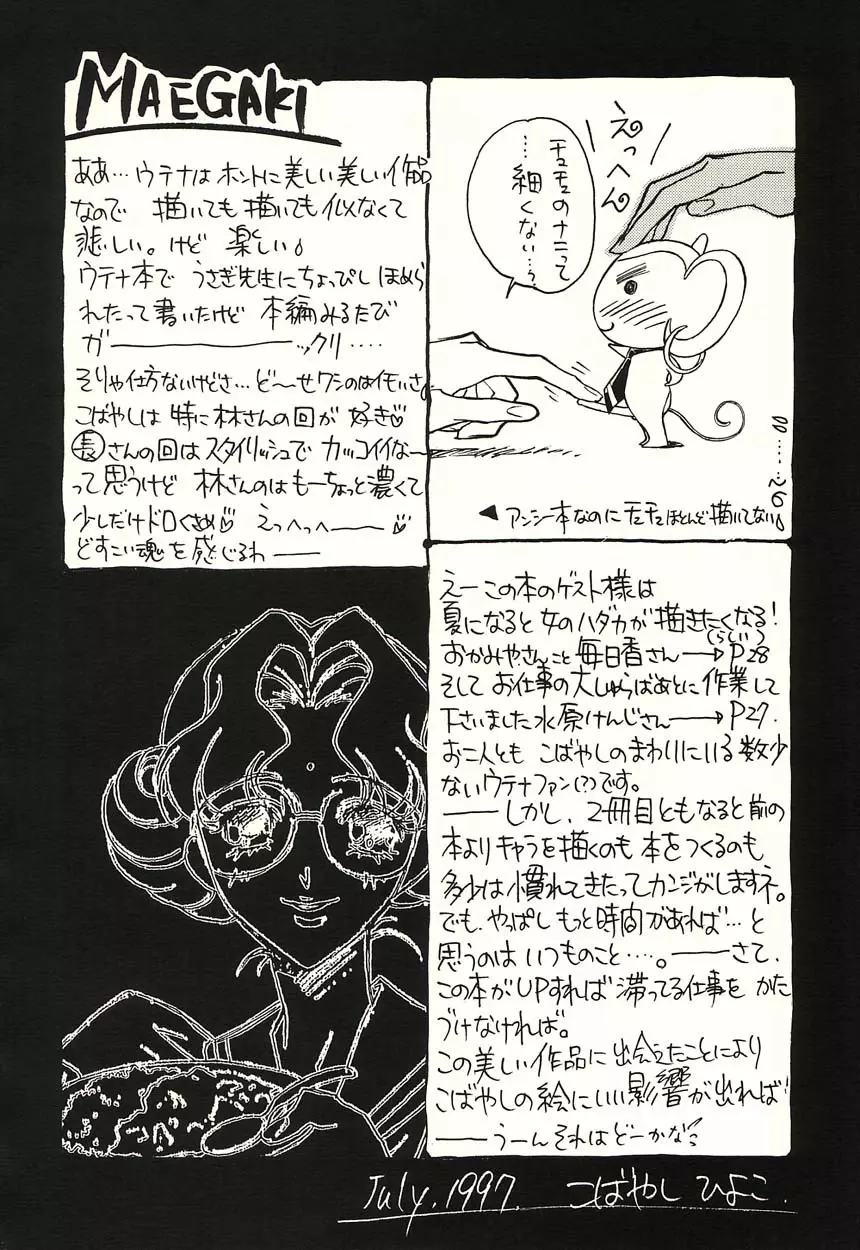 MAEGAKI
ああ…ウテナはホントに美しい美しい作品
なので 描いても描いても似なくて
悲しい。けど 楽しい♪
ウテナ本で うさぎ先生にちょっぴし ほめら
れたって書いたけど 本編みるたび
ガ――――ックリ‥‥
そりゃ仕方ないけどさ…ど〜せワシのはイモいさ。
こばやしは 特に林さんの回が 好き♡
長さんの回はスタイリッシュで カッコイイな〜
って思うけど 林さんのはもーちょっと濃くて
少しだけドロくさめ♡ えっへっへ――♡
どすこい魂を感じるわ――
えっへん
チュチュのナニって
…細くない…?
◀アンシー本なのにチュチュほとんど描いてない。
えー この本のゲスト様は
夏になると 女のハダカが 描きたくなる!
おかみやさんこと毎日香さん→P28
そして お仕事の大しゅらばあとに 作業して
下さいました水原けんじさん→P27.
お二人とも こばやしのまわりにいる数少
ないウテナファン(?)です。
――しかし、2冊目ともなると前の
本よりキャラを描くのも 本をつくるのも
多少は慣れてきたってカンジがしますネ。
でも、やっぱし もっと時間があれば…と
思うのは いつものこと‥‥。――さて、
この本がUPすれば 滞ってる仕事を かた
づけなければ。
この美しい作品に出会えたことにより
こばやしの絵にいい影響が出れば!
――うーん それはどーかな?
July.1997. こばやし ひよこ.